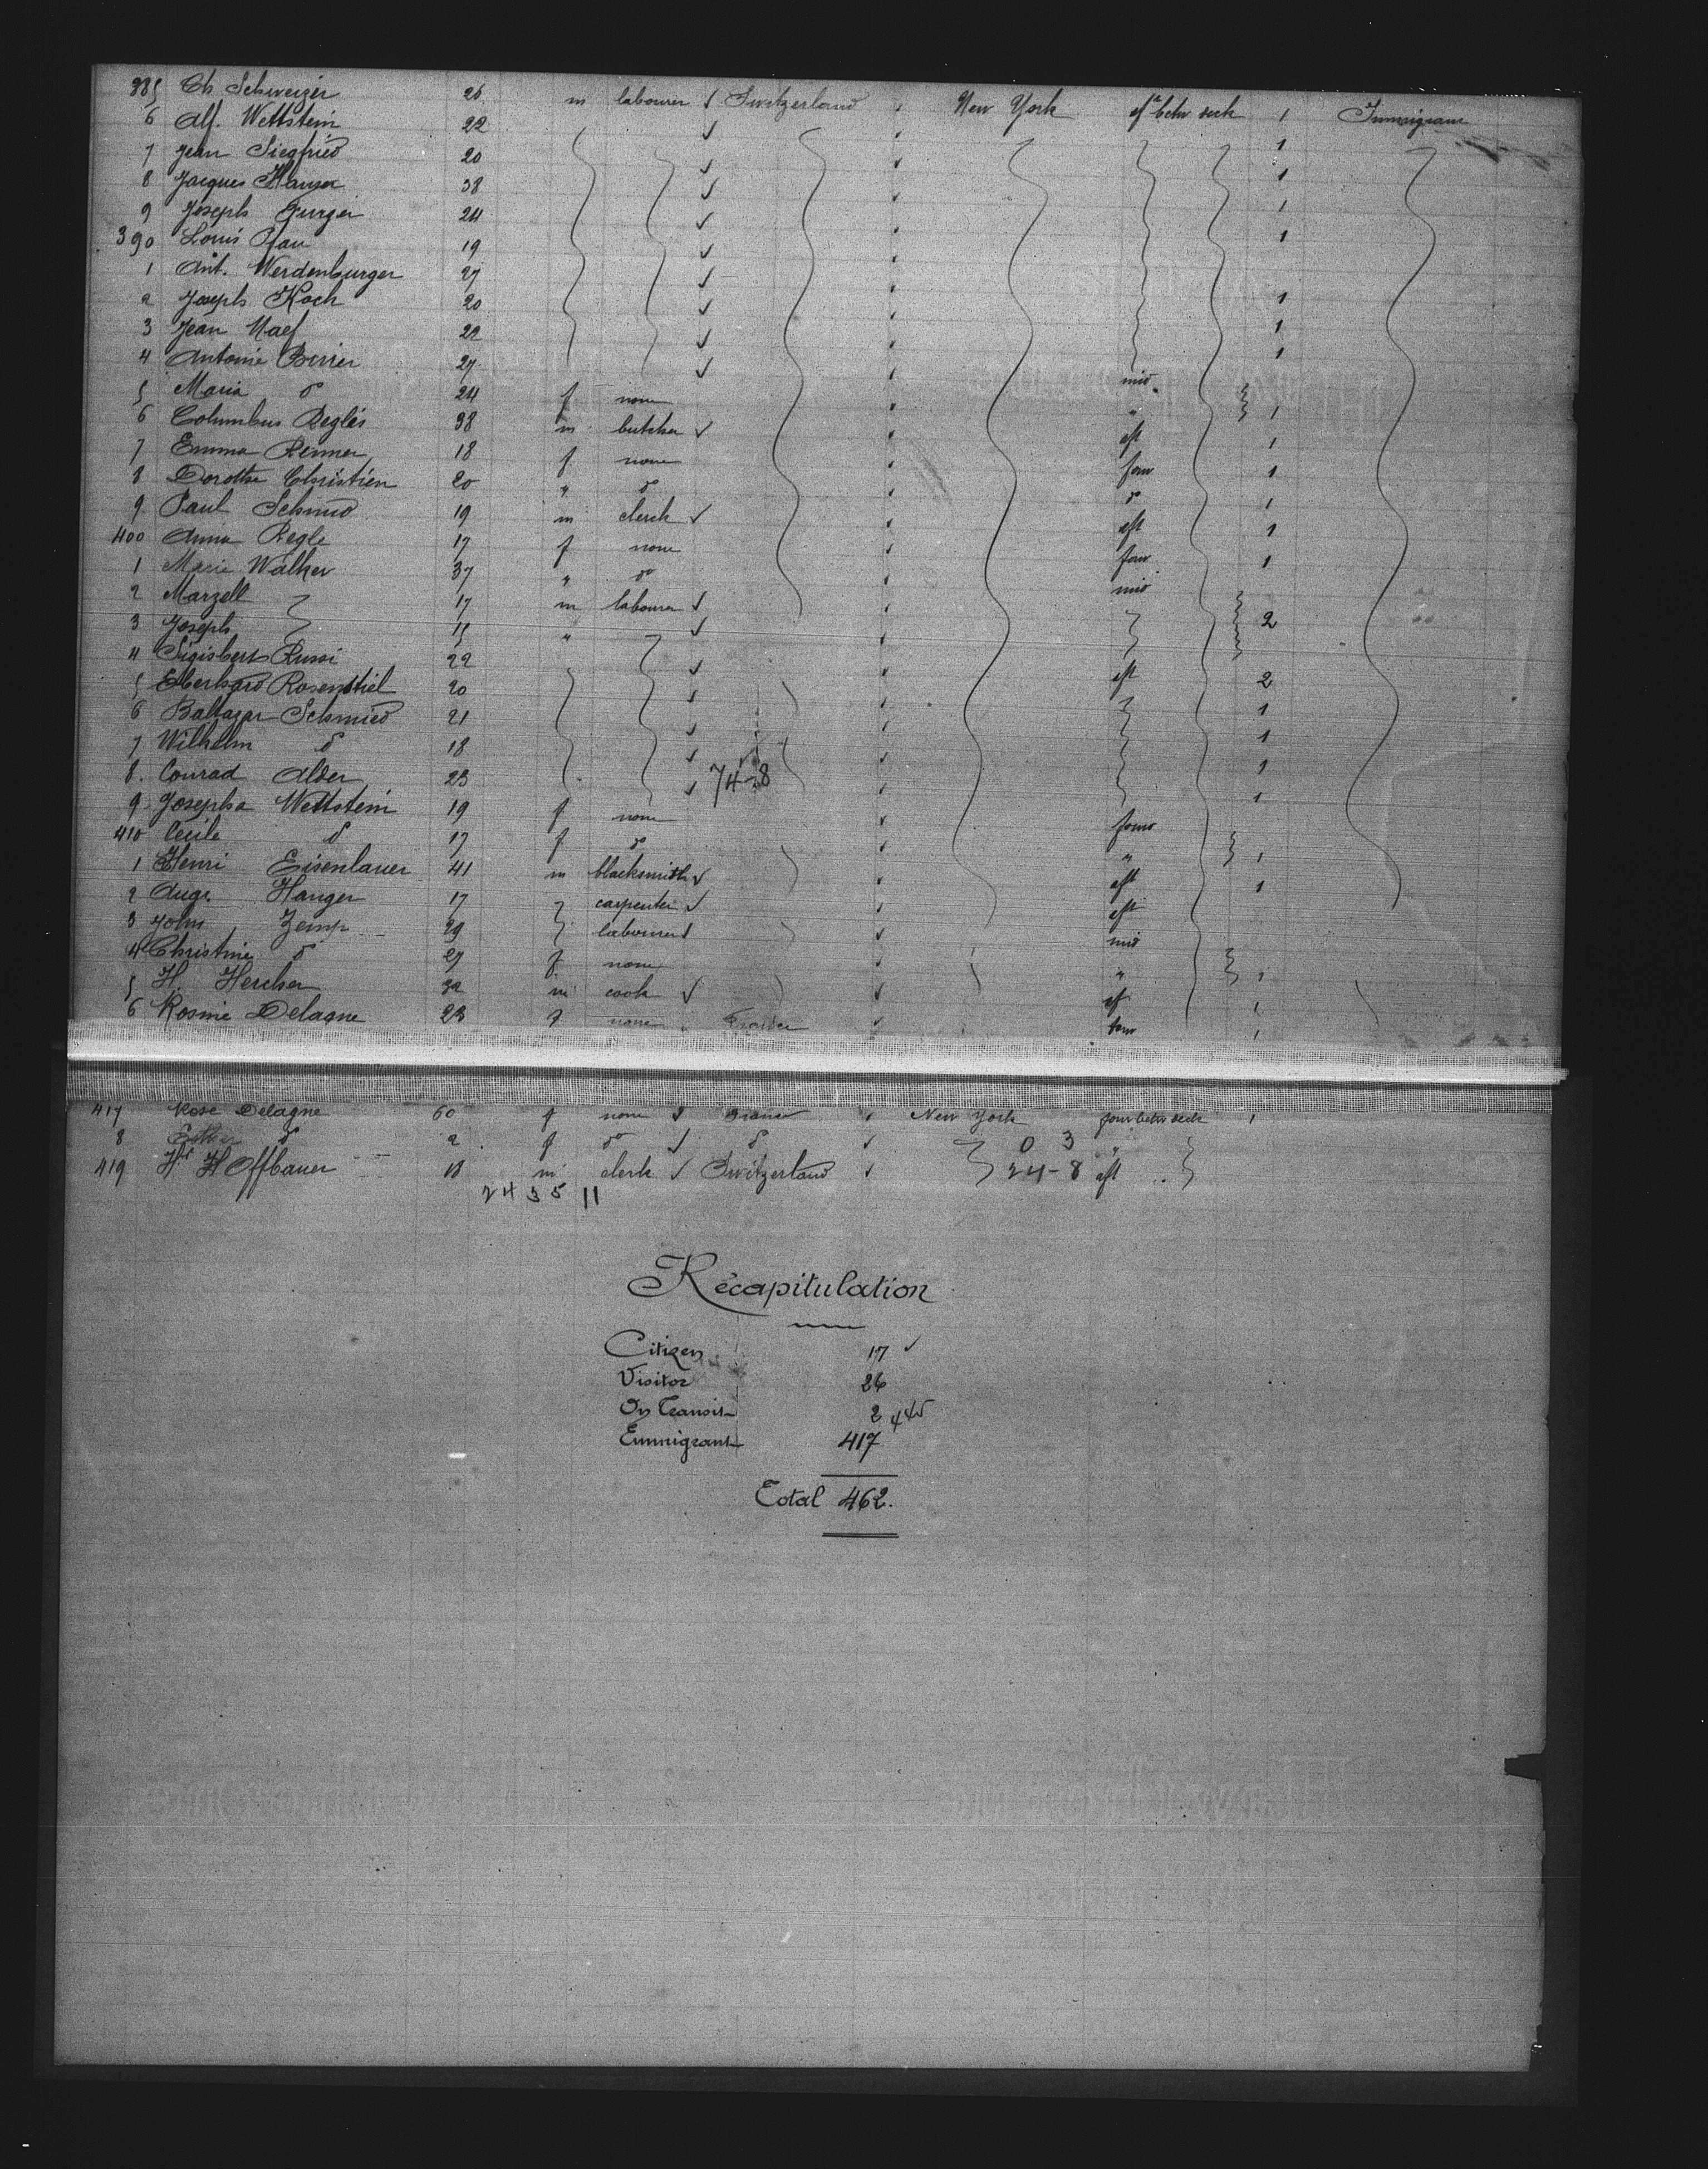 385 Ch Schweizer 26 m labourer √ Switzerland New York aft betw deck 1 Immigrant
6 Alf. Wettstein 22 √ 1
7 Jean Siegfried 20 √ 1
8 Jacques Hauser 38 √ 1
9 Joseph 24 √ 1
390 Louis 19 √
1 Ant. Werdenburger 27 √ 1
2 Joseph Koch 20 √ 1
3 Jean Naef 22 √ 1
4 Antonie 27 √ mid.
5 Maria do 24 f none " 1
6 Columbus Reglis 38 m butcher √ aft 1
7 Emma Renner 18 f none forw 1
8 Dorothe Christien 20 " do do 1
9 Paul Schmid 19 m clerck √ aft 1
400 Anna Regle 17 f none forw 1
1 Marie Walker 37 " do mid
2 Marzell 17 m labourer √ 2
3 Joseph 11 " √
4 Sigisbert Russi 22 √ aft 2
5 Eberhard Rosenstiel 20 √ 1
6 Baltazar Schmied 21 √ 1
7 Wilhelm do 18 √ 1
8. Conrad Alder 23 √ 74-8 1
9 Josepha Wettstein 19 f none forw
410 Cecile do 17 f do " 1
1 Henri Eisenlauer 41 m blacksmith √ aft 1
2 Aug. Hanger 17 carpenter √ aft
3 John Zemp 29 labourer √ mid
4 Christine do 27 f none " 1
5 H. Hercher 32 m cook √ aft 1
6 Rosine Delagne 23 f none France forw 1
417 Rose Delagne 60 f none √ France New York forw betw deck 1
8 Esther do 2 f do √ do √ 0 3 "
419 Hr Hoffbauer 18 m clerk √ Switzerland √ 24-8 aft
24 35 11
Récapitulation
Citizen 17 √
Visitor 26
On Transit 2 445
Emmigrant 417
Total 462.